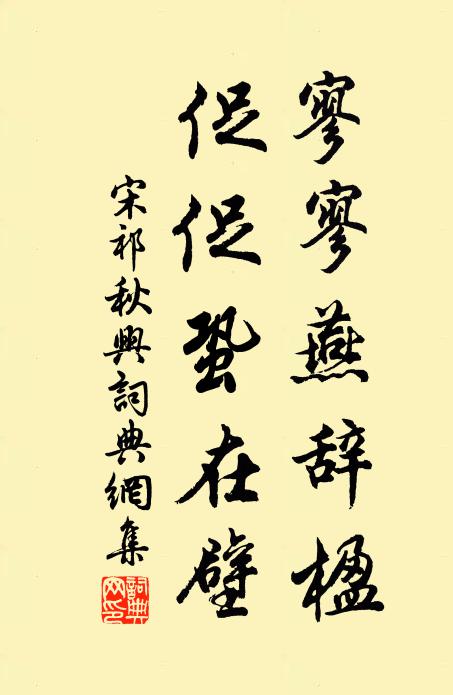 寥寥燕辞楹
促促蛩在壁
宋祁秋興詞典網集
詞典网印